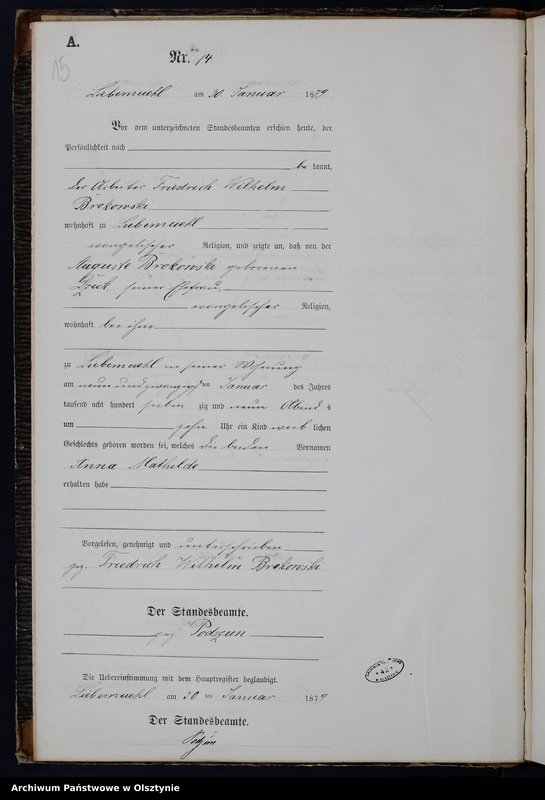 A.
15
Nr. 14
Liebemuehl am 30. Januar 1879
Vor dem unterzeichneten Standesbeamten erschien heute, der
Persönlichkeit nach
be kannt,
der Arbeiter Friedrich Wilhelm
Brozowski
wohnhaft zu Liebemuehl
evangelischer Religion, und zeigte an, daß von der
Auguste Brozowski geborenen
seiner Ehefrau,
evangelischer Religion,
wohnhaft bei ihm
zu Liebemuehl in seiner Wohnung
am neunundzwanzigsten Januar des Jahres
tausend acht hundert sieben zig und neun Abend s
um zehn Uhr ein Kind weib lichen
Geschlechts geboren worden sei, welches die beiden Vornamen
Anna Mathilde
erhalten habe
Vorgelesen, genehmigt und unterschrieben
gez. Friedrich Wilhelm Brozowski
Der Standesbeamte.
gez. Podzun
Die Uebereinstimmung mit dem Hauptregister beglaubigt.
Liebemuehl am 30 ten Januar 1879
Der Standesbeamte.
Podzun
Archiwum Państwowe w Olsztynie